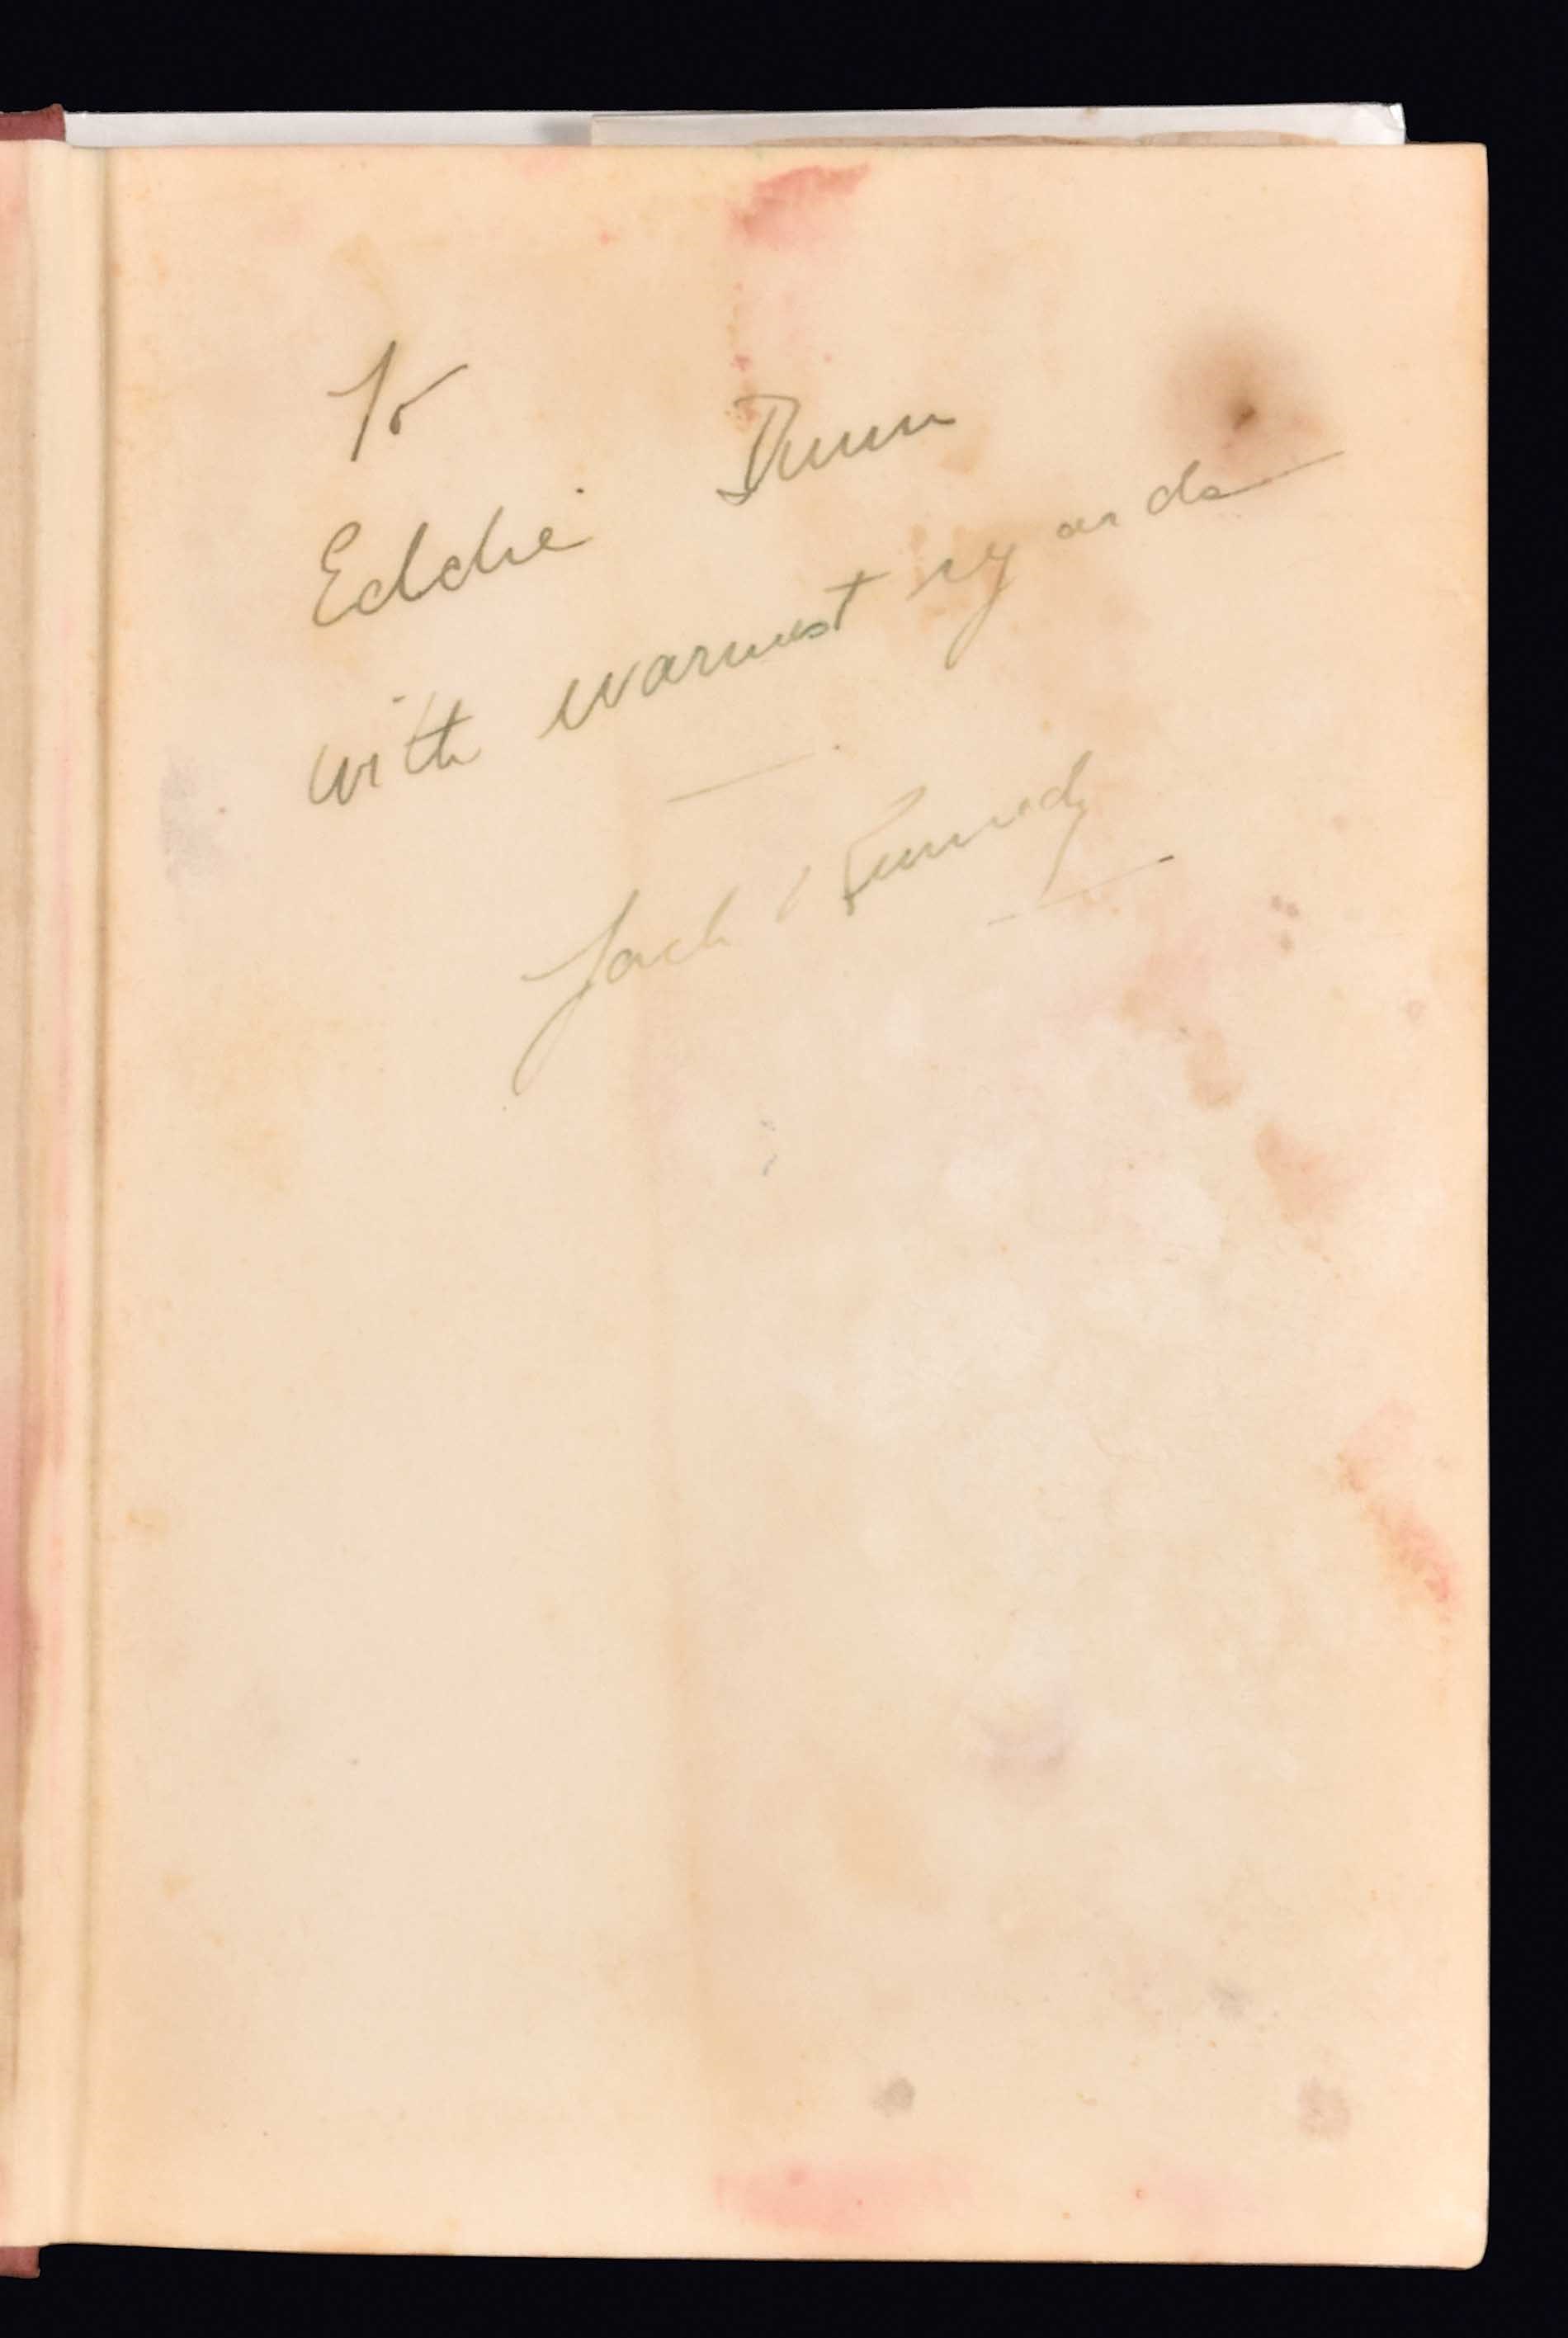 To
Eddie Dunn
with warmest regards
Jack Kennedy